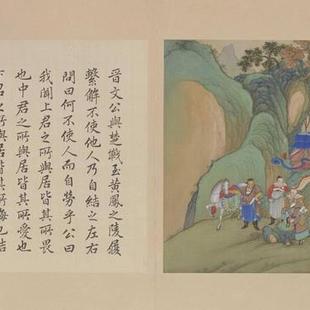 晉文公與楚戰至黃鳳之陵履
繫解不使他人乃自結之左右
問曰何不使人而自勞乎公曰
我聞上君之所與居皆其所畏
也中君之所與居皆其所愛也